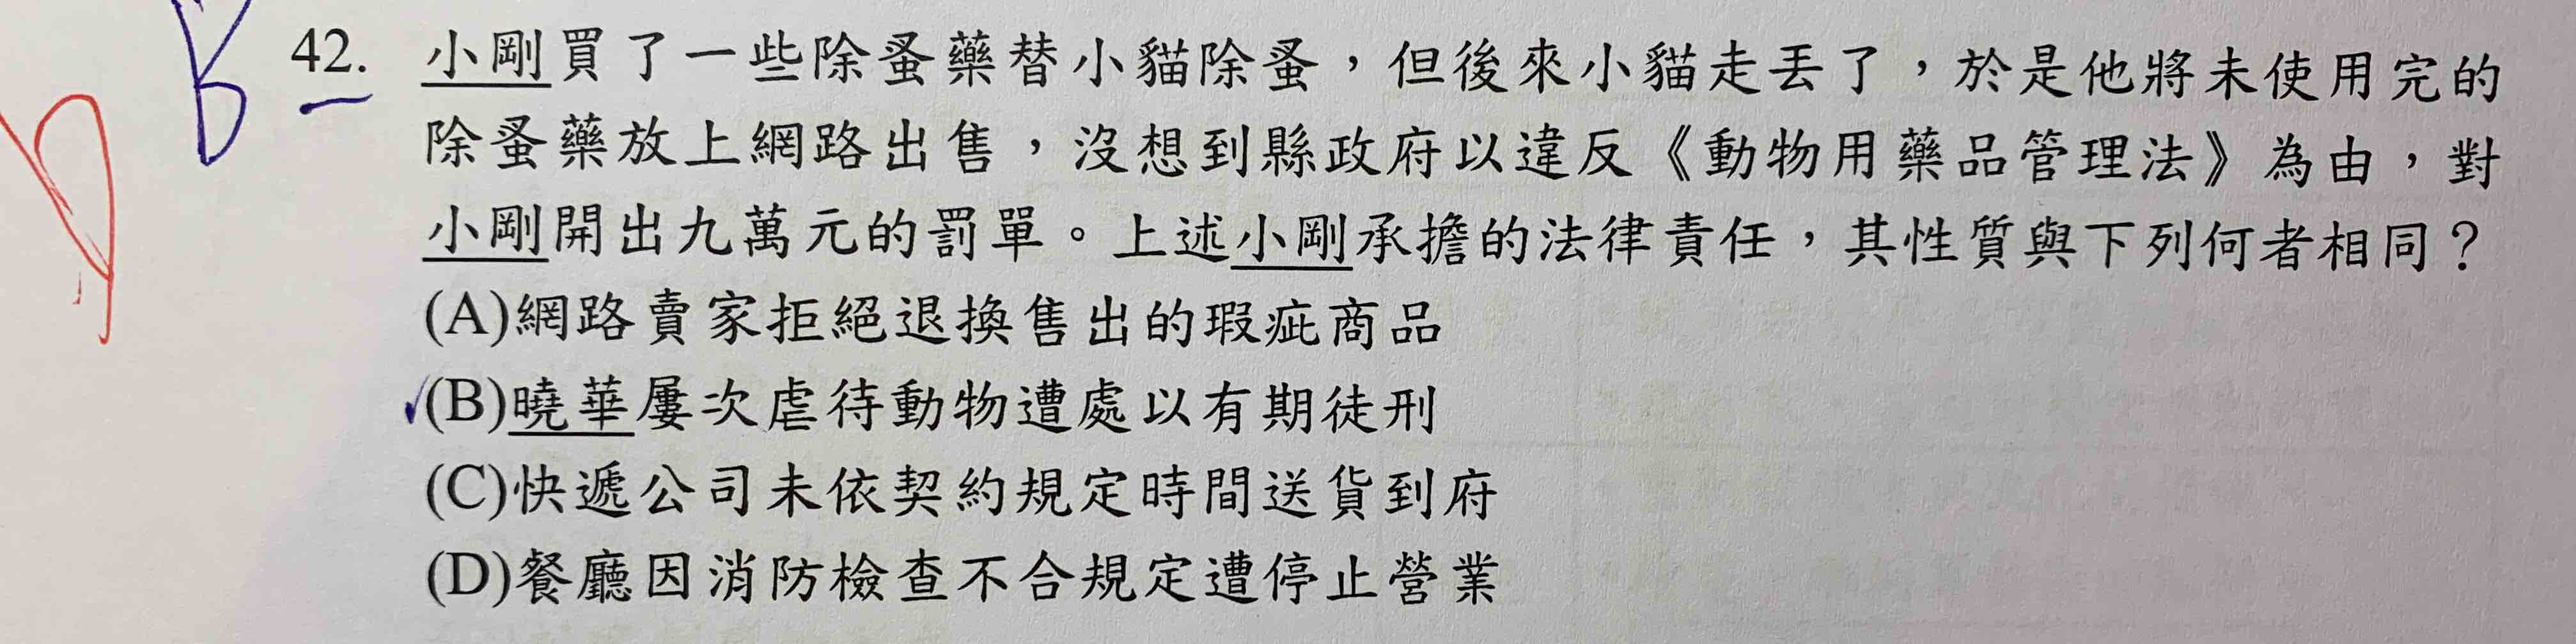 B 42. 小剛買了一些除蚤藥替小貓除蚤，但後來小貓走丟了，於是他將未使用完的
D 除蚤藥放上網路出售，沒想到縣政府以違反《動物用藥品管理法》為由，對
小剛開出九萬元的罰單。上述小剛承擔的法律責任，其性質與下列何者相同？
(A)網路賣家拒絕退換售出的瑕疵商品
✓(B)曉華屢次虐待動物遭處以有期徒刑
(C)快遞公司未依契約規定時間送貨到府
(D)餐廳因消防檢查不合規定遭停止營業